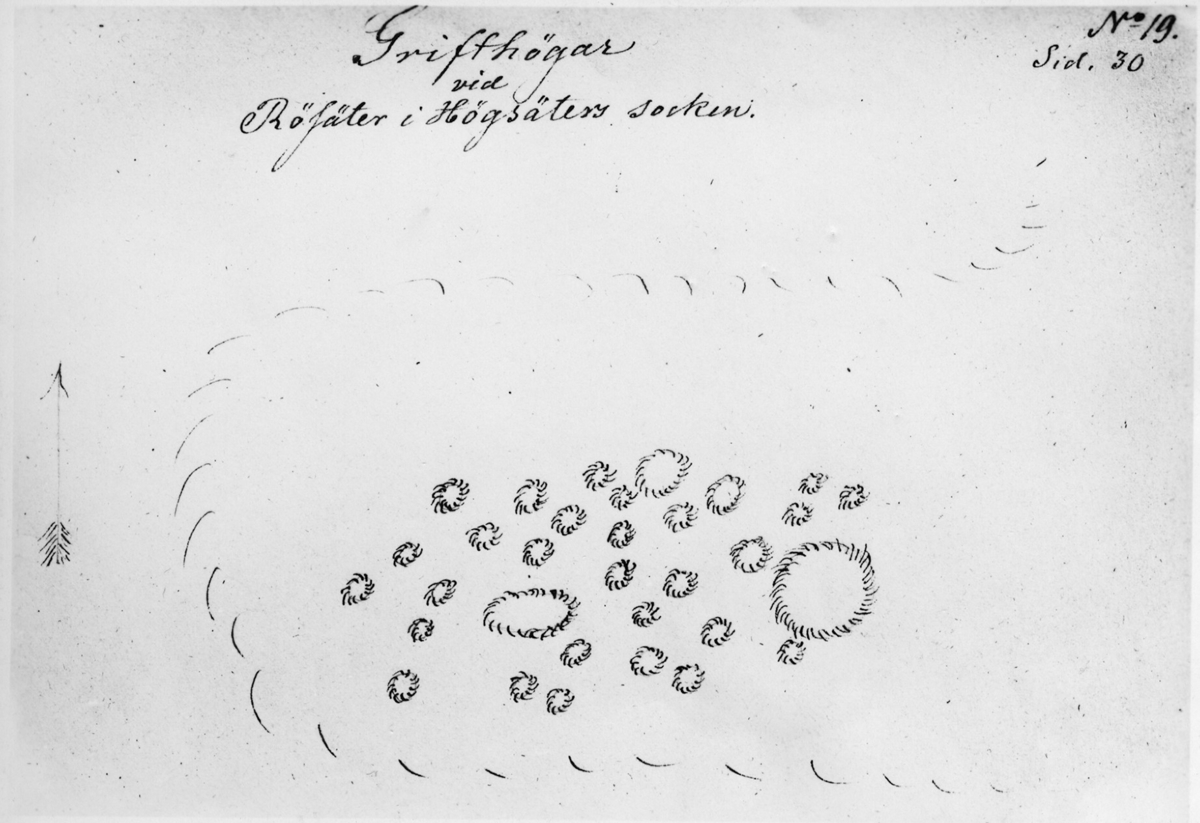 Grifthögar
vid
Rösäter i Högsäters socken.
No 19.
Sid. 30